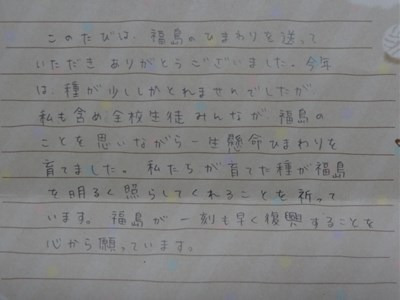 このたびは、福島のひまわりを送って
いただき ありがとうございました。今年
は、種が少ししかとれませんでしたが
私も含め全校生徒 みんなが 福島の
ことを思いながら一生懸命ひまわりを
育てました。私たちが育てた種が福島
を明るく照らしてくれることを祈って
います。福島が一刻も早く復興することを
心から願っています。